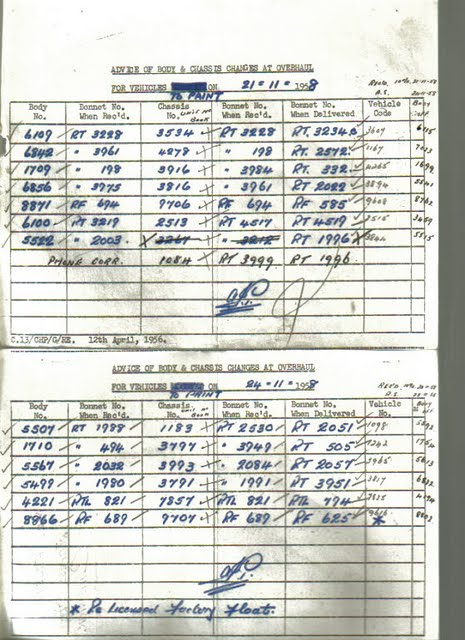 ADVICE OF BODY & CHASSIS CHANGES AT OVERHAUL
FOR VEHICLES ON 21-11-1958
TO PAINT
Body No. Bonnet No. When Rec'd. Chassis No. Unit No Book Bonnet No. When Rec'd. Bonnet No. When Delivered Vehicle Code Body
6109 RT 3228 3534 RT 3228 RT 3234 3607
6842 " 3961 4278 " 198 RT 2572 1167
1709 " 198 3916 " 3984 RT 332 4265 1699
6856 " 3975 3816 " 3961 RT 2022 3894
8871 RF 694 9706 RF 694 RF 585 9608 8762
6100 RT 3219 2513 RT 4517 RT 4519 2515 3459
5522 " 2003 3267 " 3212 RT 1996
PHONE CORR. 1084 RT 3999 RT 1996
C.13/CHP/G/EE. 12th April, 1956.
ADVICE OF BODY & CHASSIS CHANGES AT OVERHAUL
FOR VEHICLES ON 24-11-1958
TO PAINT
Body No. Bonnet No. When Rec'd. Chassis No. Unit No Book Bonnet No. When Rec'd. Bonnet No. When Delivered Vehicle No. Body
5507 RT 1988 1183 RT 2530 RT 2051 1098
1710 " 494 3797 " 3949 RT 505
5567 " 2032 3993 " 2084 RT 2057 3965
5499 " 1980 3791 " 1991 RT 3951 3817
4221 RTL 821 7857 RTL 821 RTL 794 7835
8866 RF 689 9707 RF 689 RF 625 9616
*
* Re Licensed Factory Float.